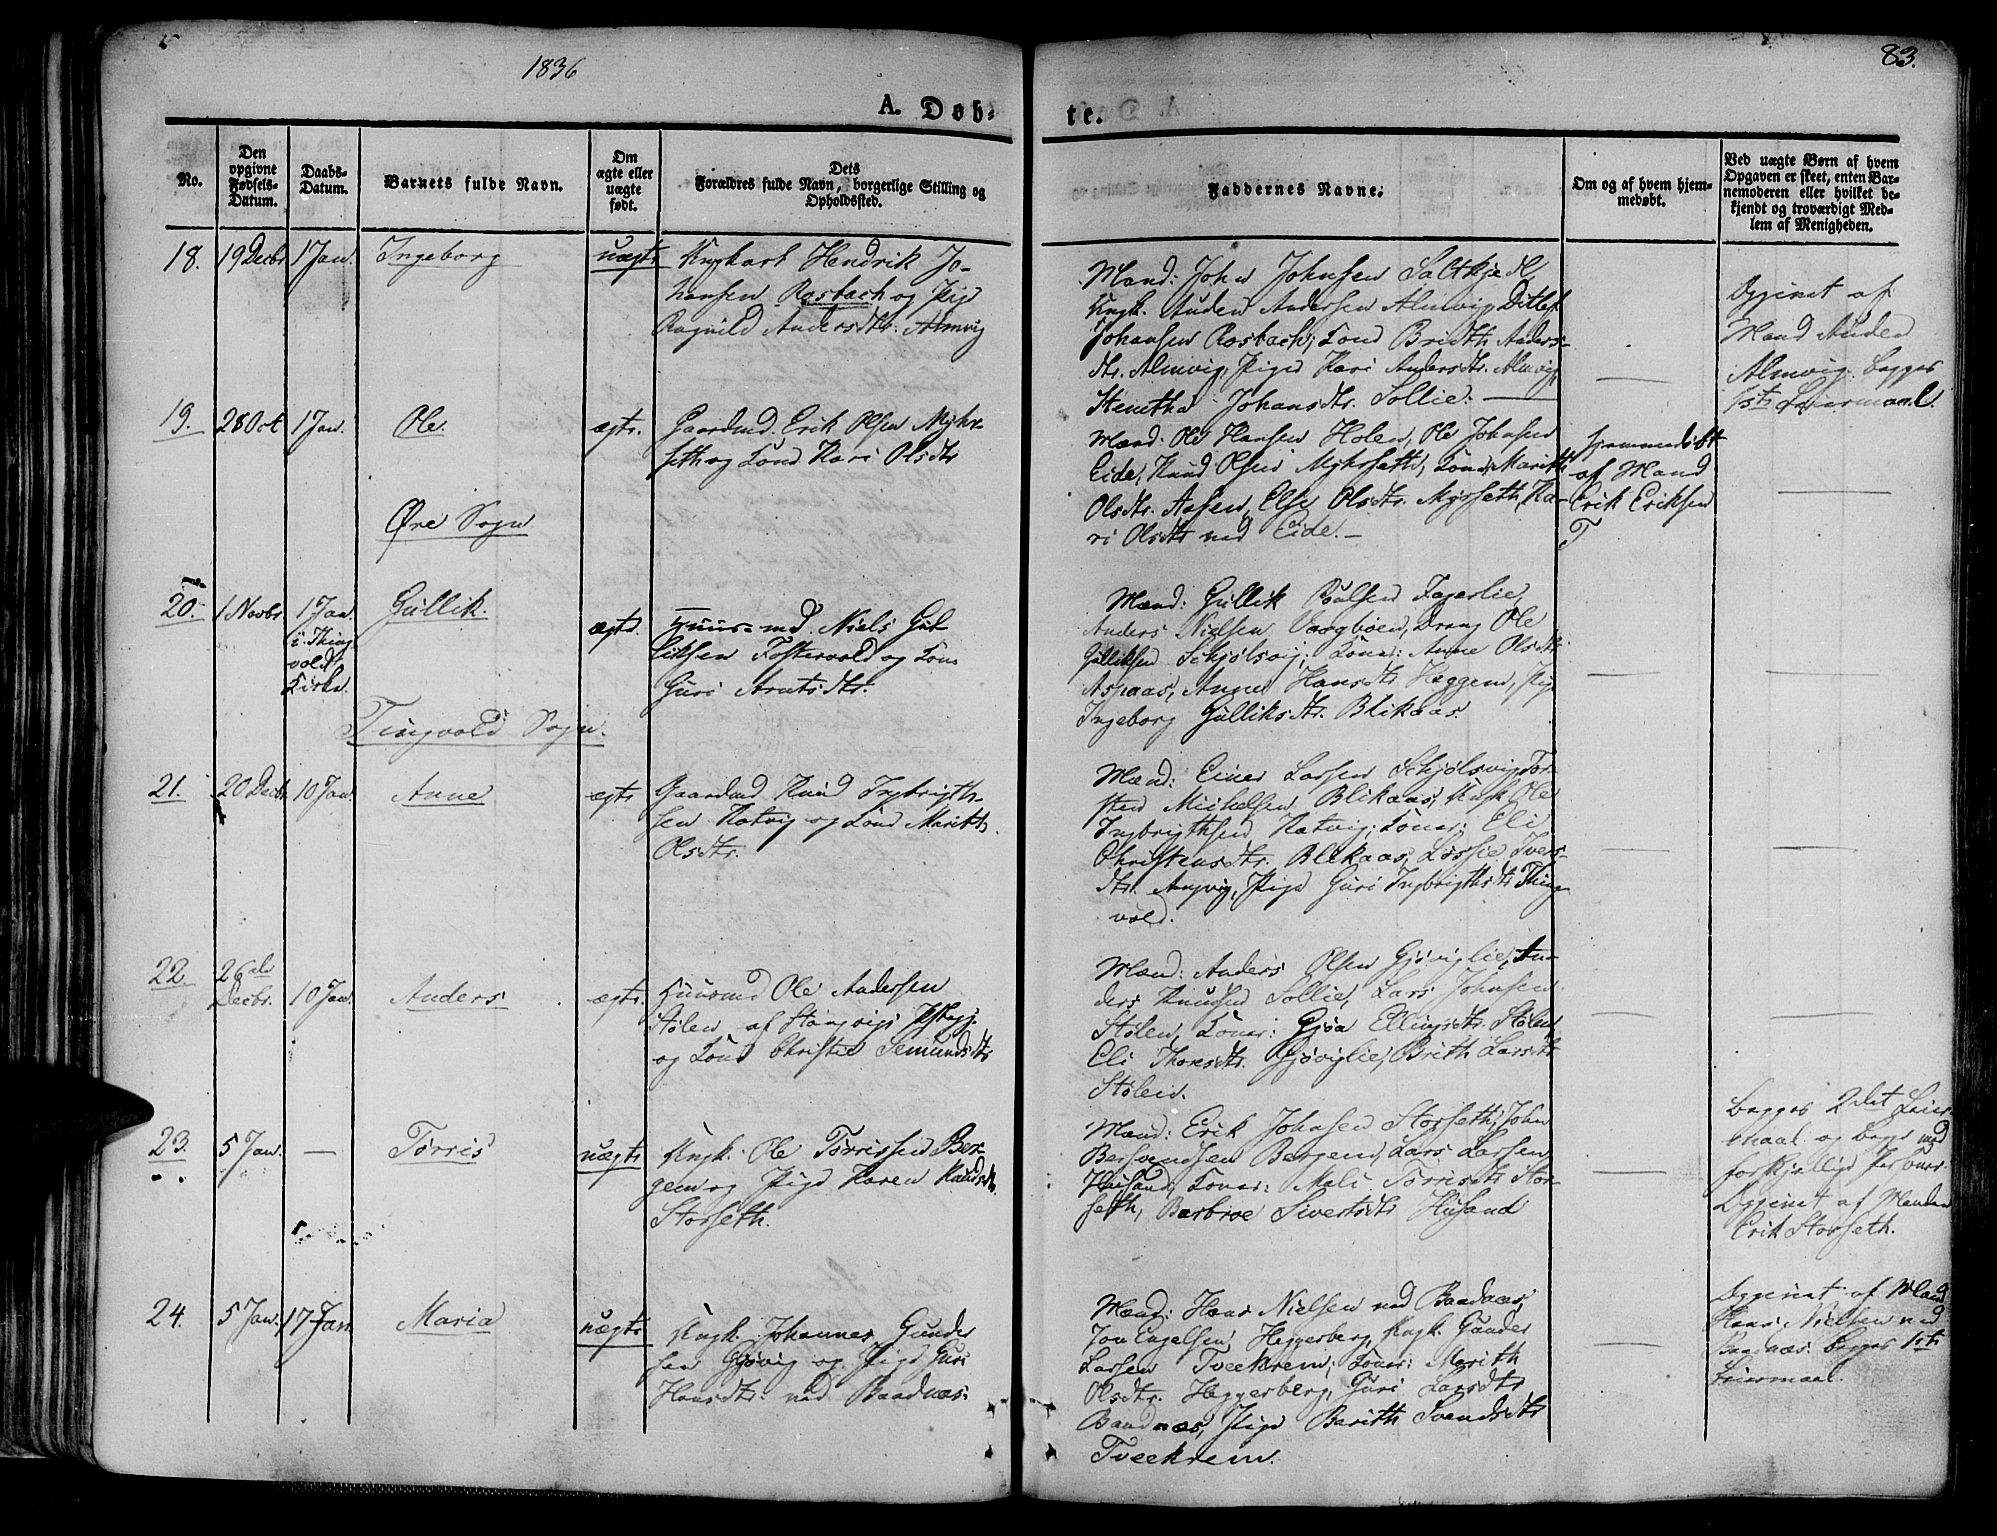 1836
83.
A. Døb-
te.
No.
Den
opgivne
Fødsels-
Datum.
Daabs-
Datum.
Barnets fulde Navn.
Om
ægte eller
uægte
født.
Dets
Forældres fulde Navn, borgerlige Stilling og
Opholdssted.
Faddernes Navne.
Om og af hvem hjem-
medøbt.
Ved uægte Børn af hvem
Opgaven er skeet, enten Bar-
nemoderen eller hvilket be-
kjendt og troværdigt Med-
lem af Menigheden.
18. 19 Decbr 1 Jan. Ingeborg uægte
Ungkarl Hendrik Jo-
hansen Rosbach og Pige
Ragnild Andersdtr. Almvig
Mænd: John Johnsen Saltkjel,
Ungk. Auden Andersen Almvig, Ditlef
Johansen Rosbach; Kone Brith Anders-
dtr. Almvig, Pige Kari Andersdtr. Almvig,
Stentha Johansdtr. Sollie.
Opginet af
Mand Auden
Almvig. begges
1ste Leiermaal.
19. 28 Oct 1 Jan. Ole ægte.
Gaardmd. Erik Olsen Myhr-
seth og Kone Kari Olsdtr
Mænd: Ole Hansen Holen, Ole Johnsen
Eide, Knud Olsen Myhrseth, Koner Marith
Olsdtr. Aasen, Else Olsdtr. Myrseth, Ka-
ri Olsdtr ned Eide.
hjemmedøbt
af Mand
Erik Eriksen
T
Øre Sogn
20. 1 Novbr. 1 Jan.
i Thing-
vold
Kirke.
Gullik. ægte.
Huusmd. Niels Gul-
liksen Fostervold og Kone
Guri Arntsdtr.
Mænd: Gullik Poulsen Fagerlie,
Anders Nielsen Vaagbøen, Dreng Ole
Gulliksen Schjølsvig; Koner: Anne Olsdtr
Aspaas, Anne Hansdtr Heggem, Pige
Ingeborg Gulliksdtr. Blikaas.
Tingvold Sogn.
21. 20 Decbr 10 Jan. Anne ægte
Gaardmd Knud Ingbrigth-
sen Hatvig og Kone Marith
Olsdtr.
Mænd: Einer Larsen Schjølsvig, Tor-
sten Michelsen Blikaas, Ungk. Ole
Ingbrigthsen Hatvig; Koner: Eli
Christensdtr. Blikaas, Løssie Ivers-
dtr. Angvig, Pige Guri Ingbrigthsdtr Thing-
vold.
22. 26de
Decbr. 10 Jan. Anders ægte.
Huusmd Ole Andersen
Stølen af Stangvigs Pstgj.
og Kone Christie Semundsdtr
Mænd: Anders Olsen Gjøviglie, An-
ders Knudsen Sollie, Lars Johnsen
Stølen, Koner: Gjøa Ellingsdtr. Stølen,
Eli Thoresdtr. Gjøviglie, Brith Larsdtr
Stølen.
23. 5 Jan. — Tørris uægte
Ungk. Ole Tørrissen Ber-
gem og Pige Karen Knudsdtr.
Storseth.
Mænd: Erik Johnsen Storseth, John
Bersvendsen Bergem, Lars Larsen
Husand, Koner: Mali Tørrisdtr Stor-
seth, Barbroe Sivertsdtr Husand
begges 2det Leier-
maal og begge med
forskjellige Personer.
Opginet af Manden
Erik Storseth.
24. 5 Jan. 17 Jan Maria uægte
Ungk. Johannes Gunder-
sen Gjøvig og Pige Guri
Hansdtr. ned Baadnæs.
Mænd: Hans Nielsen ned Baadnæs,
Jon Engelsen Heggerberg, Ungk. Gunder
Larsen Tveekrem; Koner: Marith
Olsdtr. Heggerberg, Guri Larsdtr
Baadnæs, Pige Barith Svendsdtr
Tveekrem.
Opginet af Mand
Hans Nielsen ned
Baadnæs. begges 1ste
Leiermaal.